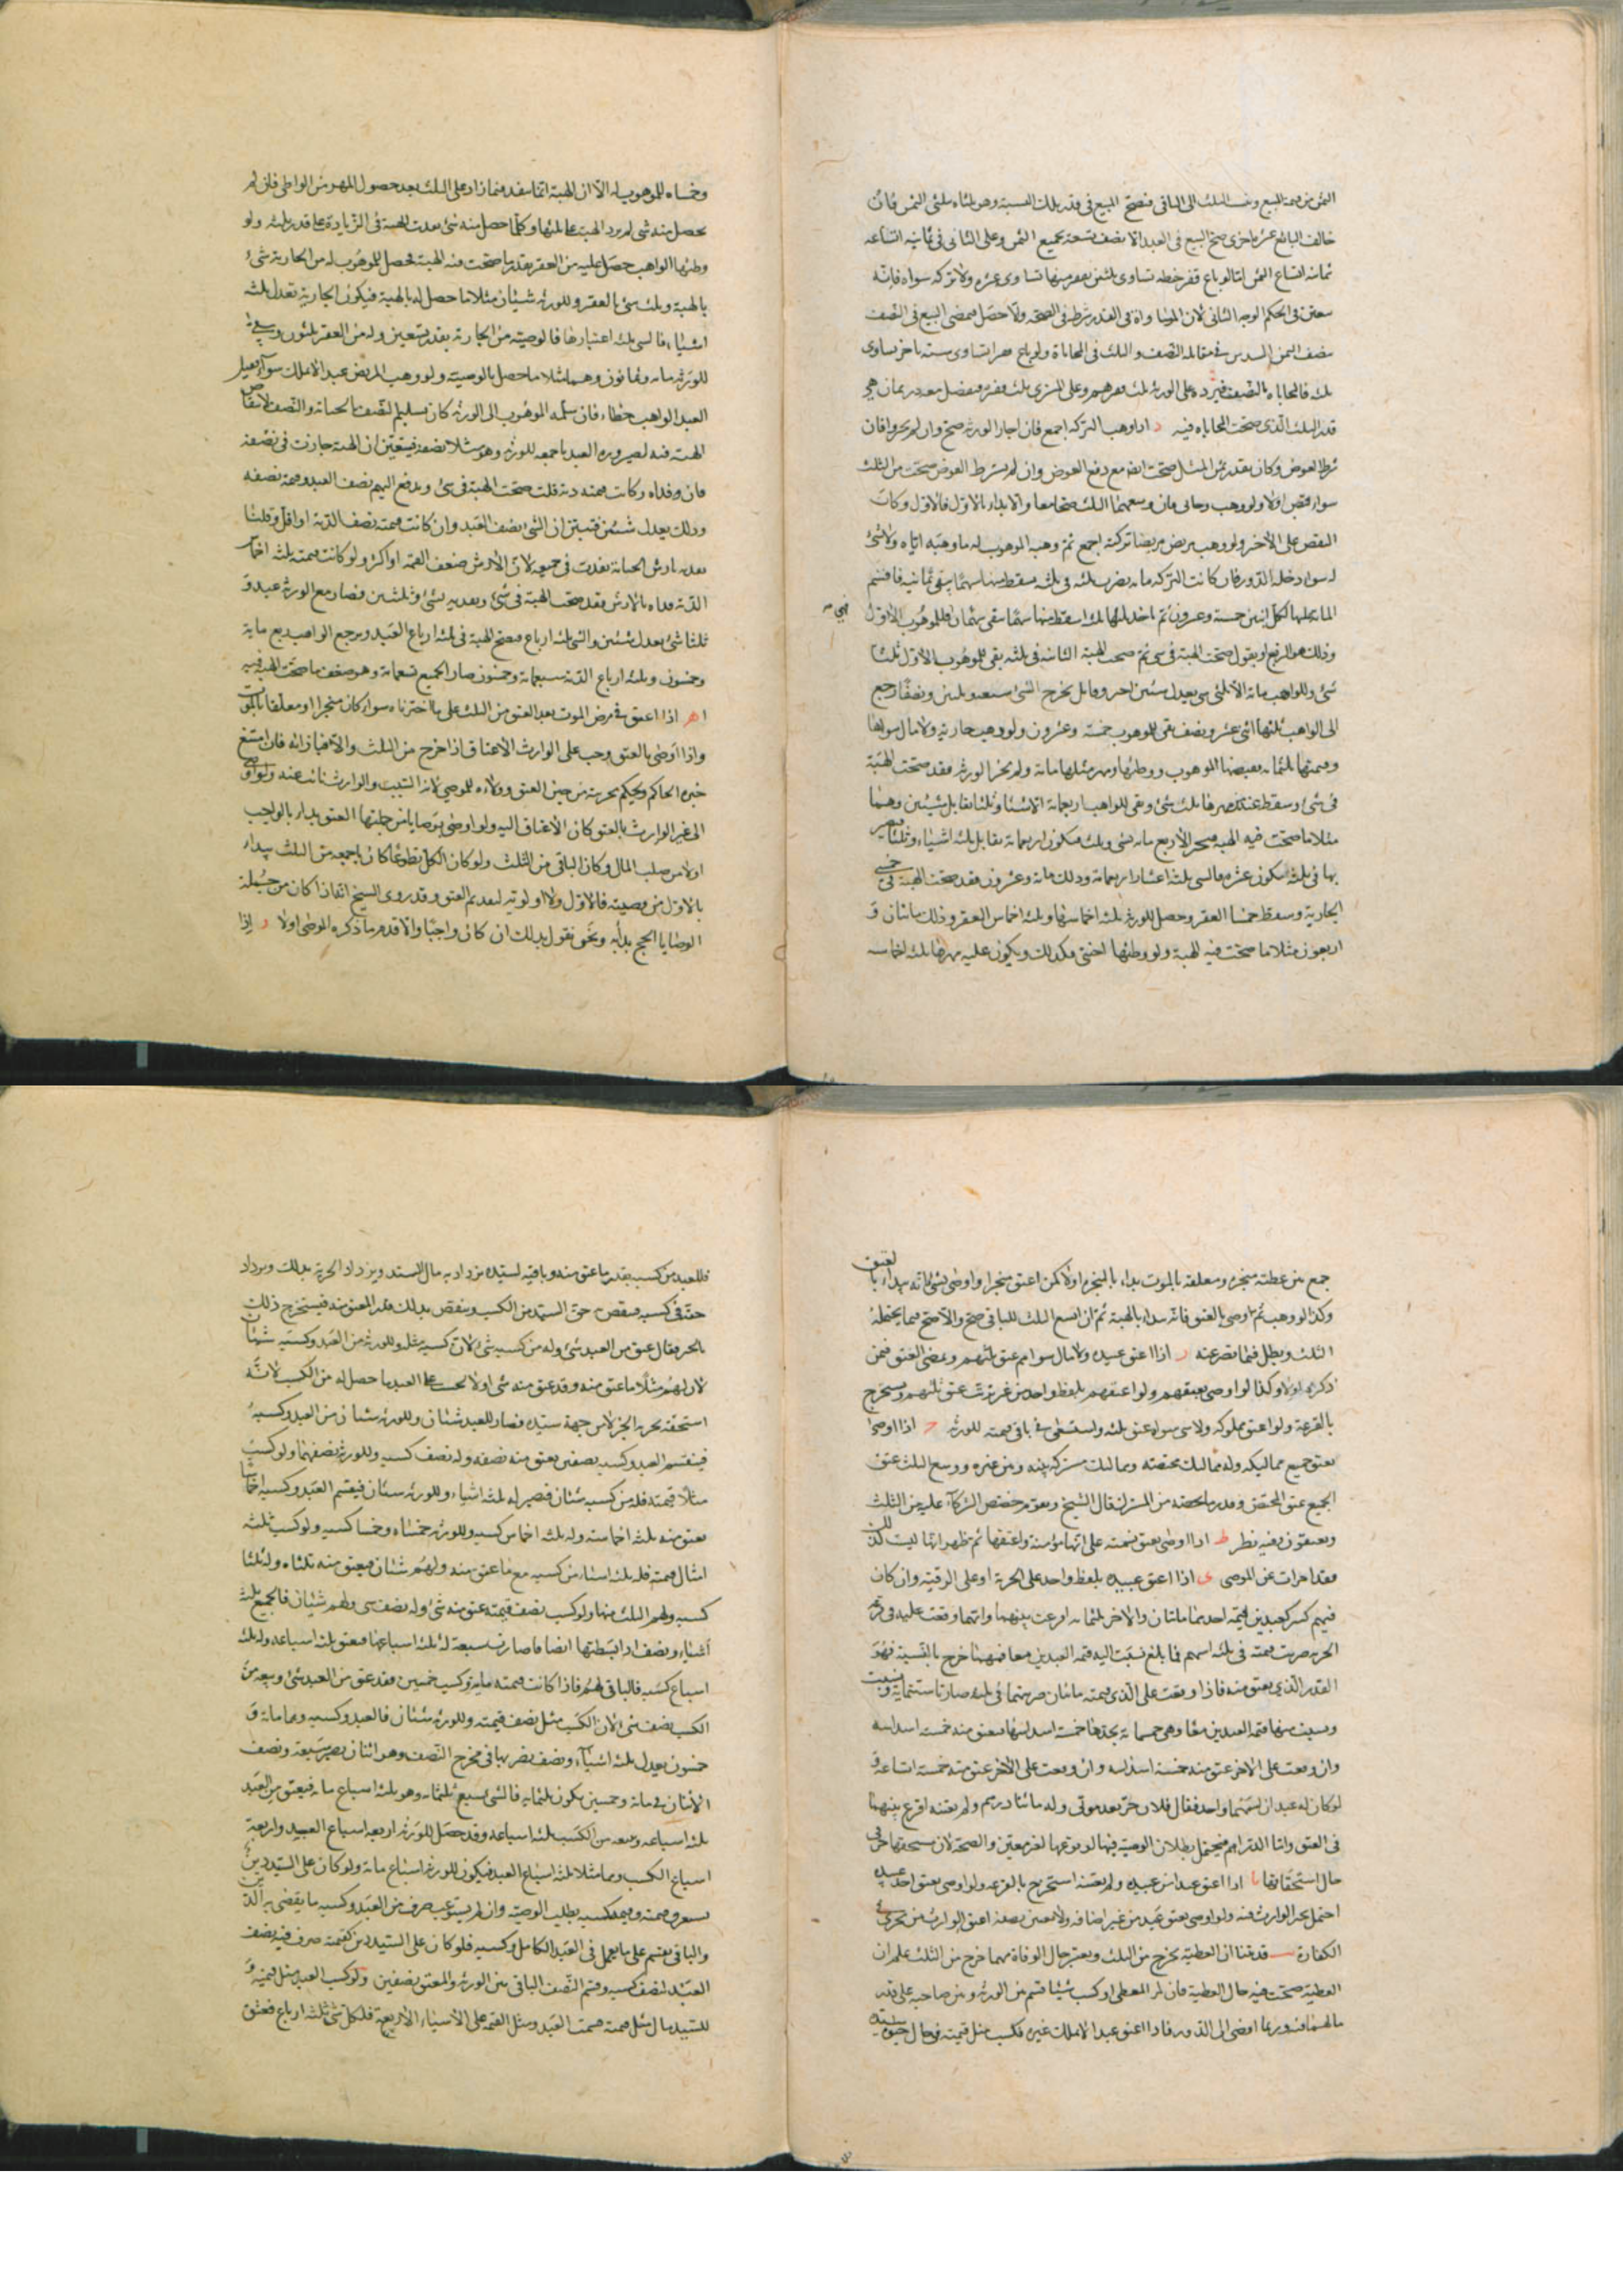 الثمن من قيمة المبيع وينسب الثلث الى الباقى فيصح المبيع فى قدر تلك النسبة وهو ثلثاه بثلثى الثمن فان
خالف البائع صح البيع فى العبد الا نصف تسعه بجميع الثمن وعلى الثانى فى ثمانية اتساعه
ثمانية اتساع الثمن اما لو باع قفيز حنطة تساوى ثلثين بقفيز منها تساوى عشرة ولا تركة سواه فانه
يتعين فى الحكم الوجه الثانى لان المساواة فى القدر شرط فى الصحة ولا حصل فيمضى البيع فى النصف
بنصف الثمن السدس فى مقابله النصف والثلث فى المحاباة ولو باع بستة باخر يساوى
ثلثه فالمحاباة بالنصف فيرده على الورثة ثلث قفيزهم وعلى المشترى ثلث قفيزه
قدر الثلث الذى صحت المحاباة فيه د اذا وهب التركة اجمع فان اجاز الورثة صح وان لم يجيزوا فان
شرط العوض وكان بقدر ثمن المثل صحت ايضا مع دفع العوض وان لم يشترط العوض صحت من الثلث
سواء اقبض اولا ولو وهب وحابى فان وسعهما الثلث صحا معا والا بدئ بالاول فالاول وكان
النقص على الاخر ولو وهب مريض مريضا تركته اجمع ثم وهب الموهوب له ما وهبه اياه ولا شئ
له سواه دخله الدور فان كانت التركة مائة يضرب ثلثه فى ثلثه يسقط منها سهما يبقى ثمانية فاقسم
المائة عليها لكل اثنين خمسة وعشرون ثم اخذ ثلثها اسقط منها سهما يبقى سهمان فللموهوب الاول
وذلك هو الربع او يقول صحت الهبة فى شئ ثم صحت الهبة الثانية فى ثلثه بقى للموهوب الاول ثلثا
شئ وللواهب مائة الا ثلثى شئ يعدل شيئين اجبر وقابل يخرج الشئ سبعة وثلثين ونصفا رجع
الى الواهب ثلثها اثنى عشر ونصف بقى للموهوب خمسة وعشرون ولو وهب جارية ولا مال سواها
وقيمتها ثلثمائة بقبضها الموهوب ووطئها ومهر مثلها مائة ولم يجز الورثة فقد صحت الهبة
فى شئ وسقط عنه مهرها ثلث شئ وبقى للواهب اربعمائة الا شيئا وثلثا يقابل شيئين وهما
مثلا ما صحت فيه الهبة فيجبر الاربع مائة بشئ وثلث فيكون اربعمائة يقابل ثلثة اشياء وثلثا يضر
بها فى ثلثة يكون عشرة فالشئ ثلثة اعشار اربعمائة وذلك مائة وعشرون فقد صحت الهبة فى خمسى
الجارية وسقط خمسا العقر وحصل للورثة ثلثة اخماسها وثلثة اخماس العقر وذلك مائتان و
اربعون مثلا ما صحت فيه الهبة ولو وطئها اجنبى فكذلك ويكون عليه مهرها ثلثة اخماسه
وخمساه للموهوب له الا ان الهبة انما ينفد فيما زاد على الثلث بعد حصول المهر من الواطى فان لم
يحصل منه شئ لم يزد الهبة على ثلثها وكلما حصل منه شئ نفدت الهبة فى الزيادة على قدر ثلثه ولو
وطئها الواهب حصل عليه من العقر بقدر ما صحت فيه الهبة فحصل للموهوب له من الجارية شئ
بالهبة وثلث شئ بالعقر وللورثة شيئان مثلا ما حصل له بالهبة فيكون الجارية تعدل ثلثة
اشياء فالوصية من الجارية بقدر تسعين وله من العقر ثلثون ويبقى
للورثة مائة وثمانون وهما مثلا ما حصل بالوصية ولو وهب المريض عبدا لا يملك سواه فقتل
العبد الواهب خطاء فان سلمه الموهوب الى الورثة كان تسليم النصف بالجناية والنصف لانتقاض
الهبة فيه لصيرورة العبد باجمعه للورثة وهو مثلا نصفه فيتعين ان الهبة جازت فى نصفه
فان وفداه وكانت قيمته دية قلت صحت الهبة فى شئ ويدفع اليهم نصف العبد وقيمة نصفه
وذلك يعدل شيئين فتبين ان الشئ نصف العبد وان كانت قيمته نصف الدية او اقل وقلنا
يفديه بارش الجناية نفدت فى جميعه لان الارش ضعف القيمة او اكثر ولو كانت قيمته ثلثة اخماس
الدية فداه بالارش فقد صحت الهبة فى شئ ويفديه بشئ وثلثين فصار مع الورثة عبد و
ثلثا شئ يعدل شيئين والشئ ثلثة ارباع فيصح الهبة فى ثلثة ارباع العبد ويرجع الى الواهب ربع مائة
وخمسون وثلثة ارباع الدية سبعمائة وخمسون صار الجميع تسعمائة وهو ضعف ما صحت الهبة فيه
اذا اعتق فى مرض الموت بعد العتق من الثلث على ما اخترناه سواء كان منجزا او معلقا بالموت
واذا اوصى بالعتق وجب على الوارث الاعتاق اذا خرج من الثلث والا فبازائه فان امتنع
خيره الحاكم ويحكم بحريته من حين العتق وولاؤه للموصى لانه السبب والوارث نائب عنه ولو اوصى
الى غير الوارث بالعتق كان الاعتاق اليه ولو اوصى بوصايا من جملتها العتق بدئ بالواجب
اولا من صلب المال وكان الباقى من الثلث ولو كان الكل تطوعا كان باجمعه من الثلث يبداء
بالاول من وصيته فالاول ولا اولوية لتقديم العتق وقد روى الشيخ انه اذا كان من جملة
الوصايا الحج بدئ به ونحن نقول بذلك ان كان واجبا والا قدم ما ذكره الموصى اولا و اذا
جمع بين عطية منجزة ومعلقة بالموت بداء بالمنجزة اولا كمن اعتق منجزا واوصى بشئ فانه يبداء بالعتق
وكذا لو وهب ثم اوصى بالعتق فانه يبداء بالهبة ثم ان اتسع الثلث للباقى صح والا صح فيما يحتمله
الثلث وبطل فيما قصر عنه ز اذا اعتق عبيده ولا مال سواهم عتق ثلثهم ويمضى العتق فيمن
ذكره اولا وكذا لو اوصى بعتقهم ولو اعتقهم بلفظ واحد من غير ترتيب عتق ثلثهم ويستخرج
بالقرعة ولو اعتق مملوكه ولا شئ سواه عتق ثلثه ويستسعى فى باقى قيمته للورثة ح اذا اوصى
بعتق جميع مماليكه وله مماليك يختصه ومماليك مشتركة بينه وبين غيره ووسع الثلث عتق
الجميع عتق المختص وقدر ما يخصه من المشترك قال الشيخ ويقوم حصص الشركاء عليه من الثلث
ويعتقون وفيه نظر ط اذا اوصى بعتق نسمة على انها مؤمنة واعتقها ثم ظهر انها ليست كذلك
فقد اجزات عن الموصى ى اذا اعتق عبيده بلفظ واحد على الحرية او على الرقية وان كان
فيهم كسر كعبدين قيمة احدهما مائتان والاخر ثلثمائة اقرعت بينهما وايهما وقعت عليه قرعة
الحرية ضربت قيمته فى ثلثة اسهم فما بلغ نسبت اليه قيمة العبدين معا فمهما خرج بالنسبة فهو
القدر الذى يعتق منه فاذا وقعت على الذى قيمته مائتان ضربتهما فى ثلثة صارتا ستمائة ونسبت
ونسبت منها قيمة العبدين معا وهى خمسمائة تجدها خمسة اسداسها فيعتق منه خمسة اسداسه
وان وقعت على الاخر عتق منه خمسة اتساعه و
لو كان له عبدان اسمهما واحد فقال فلان حر بعد موتى وله مائتا درهم ولم يعينه اقرع بينهما
فى العتق واما الدراهم فيحتمل بطلان الوصية فيها لوقوعها لغير معين والصحة لان مستحقها حر فى
حال استحقاقها يا اذا اعتق عبدا من عبيده ولم يعينه استخرج بالقرعة ولو اوصى بعتق احد عبيده
احتمل تخير الوارث فيه ولو اوصى بعتق عبد من غير اضافة ولا تعيين بصفة اعتق الوارث من يجزى فى
الكفارة يب قد بينا ان العطية يخرج من الثلث ويعتبر حال الوفاة فمهما خرج من الثلث علم ان
العطية صحت فيه حال العطية فان المعطى او كسب شيئا قسم بين الورثة وبين صاحبه على قدر
مالهما فيه وربما افضى الى الدور فاذا اعتق عبدا لا يملك غيره فكسب مثل قيمته فى حال حيوة سيده
فللعبد من كسبه بقدر ما عتق منه وباقيه لسيده فيزداد به مال السيد ويزداد الحرية بذلك ويزداد
حقه فى كسبه فينقص به حق السيد من الكسب وينقص بذلك قدر المعتق منه فيستخرج ذلك
بالجبر فيقال عتق من العبد شئ وله من كسبه شئ لان كسبه مثله وللورثة من العبد وكسبه شيئان
لان لهم مثلا ما عتق منه وقد عتق منه شئ ولا يحسب على العبد ما حصل له من الكسب لانه
استحقه بحرية الجزء لا من جهة سيده فصار للعبد شيئان وللورثة شيئان من العبد وكسبه
فينقسم العبد وكسبه نصفين يعتق منه نصفه وله نصف كسبه وللورثة نصفهما ولو كسب
مثلى قيمته فله من كسبه شيئان فصير له ثلثة اشياء وللورثة شيئان فيقسم العبد وكسبه اخماسا
يعتق منه ثلثة اخماسه وله ثلثة اخماس كسبه وللورثة خمساه وخمسا كسبه ولو كسب ثلثة
امثال قيمته فله ثلثة اشياء من كسبه مع ما عتق منه ولهم شيئان فيعتق منه ثلثاه وله ثلثا
كسبه ولهم الثلث منهما ولو كسب نصف قيمته عتق منه شئ وله نصف شئ ولهم شيئان فالجميع ثلثة
اشياء ونصف اذا بسطتها انصافا صارت سبعة له ثلثة اسباعها فيعتق ثلثة اسباعه وله ثلثة
اسباع كسبه فالباقى لهم فاذا كانت قيمته مائة وكسب خمسين فقد عتق من العبد شئ وتبعه من
الكسب نصف شئ لان الكسب مثل نصف قيمته وللورثة شيئان فالعبد وكسبه وهما مائة و
خمسون يعدل ثلثة اشياء ونصف يضربها فى مخرج النصف وهو اثنان يصير سبعة ونضرب
الاثنان فى مائة وخمسين يكون ثلثمائة فالشئ سبع ثلثمائة وهو ثلثة اسباع مائة فيعتق من العبد
ثلثة اسباعه وتبعه من الكسب ثلثة اسباعه وقد حصل للورثة اربعة اسباع العبد واربعة
اسباع الكسب وهما مثلا ثلثة اسباع العبد فيكون للورثة اسباع مائة ولو كان على السيد دين
يستغرق قيمته وقيمة كسبه بطلت الوصية وان لم يستوعب صرف من العبد وكسبه ما يقضى به الدين
والباقى يقسم على ما يعمل فى العبد الكامل وكسبه فلو كان على السيد دين كقيمته صرف فيه نصف
العبد ونصف كسبه وقسم النصف الباقى بين الورثة والمعتق نصفين ولو كسب العبد مثل قيمته و
للسيد مال مثل قيمته قسمت العبد ومثلى القيمة على الاشياء الاربعة فلكل شئ ثلثة ارباع فعتق